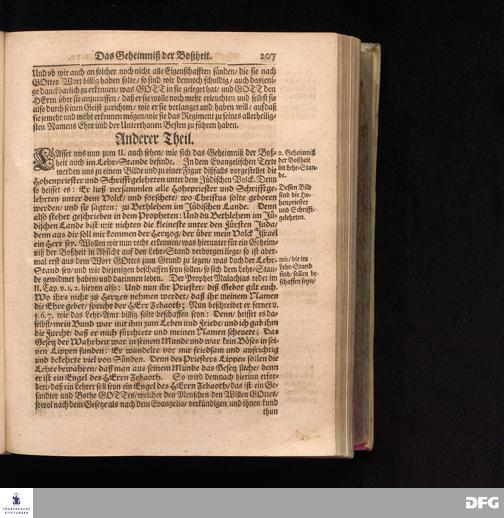 Das Geheimniß der Boßheit. 207
Und ob wir auch an solcher noch nicht alle Eigenschafften fänden/ die sie nach
GOttes Wort billig haben solte/ so sind wir dennoch schuldig/ auch das jeni-
ge danckbarlich zu erkennen/ was GOTT in sie geleget hat/ und GOTT den
HErrn über sie anzuruffen/ daß er sie wolle noch mehr erleuchten und selbst sie
also durch seinen Geist zurichten/ wie er sie verlanget und haben will/ auf daß
sie je mehr und mehr erkennen mögen/ wie sie das Regiment zu seines allerheilig-
sten Namens Ehr und der Unterthanen Besten zu führen haben.
Anderer Theil.
LAsset uns nun zum II. auch sehen/ wie sich das Geheimniß der Boß-
heit auch im Lehr-Stande befinde. In dem Evangelischen Texte
werden uns zu einem Bilde und zu einer Figur dißfalls vorgestellet die
Hohenpriester und Schrifftgelehrten unter dem Jüdischen Volck. Denn
so heisset es: Er ließ versammlen alle Hohepriester und Schrifftge-
lehrten unter dem Volck/ und forschete/ wo Christus solte geboren
werden/ und sie sagten: zu Bethlehem im Jüdischen Lande. Denn
also stehet geschrieben in dem Propheten: Und du Bethlehem im Jü-
dischen Lande bist mit nichten die kleineste unter den Fürsten Juda/
denn aus dir soll mir kommen der Hertzog/ der über mein Volck Israel
ein Herr sey. Wollen wir nun recht erkennen/ was hierunter für ein Geheim-
niß der Boßheit in Absicht auf den Lehr-Stand verborgen liege/ so ist aber-
mal erst aus dem Wort GOttes zum Grund zu legen/ was doch der Lehr-
Stand sey/ und wie diejenigen beschaffen seyn sollen/ so sich dem Lehr-Stan-
de gewidmet haben/ und darinnen leben. Der Prophet Malachias redet im
II. Cap. v. 1. 2. hievon also: Und nun ihr Priester/ diß Gebot gilt euch.
Wo ihrs nicht zu Hertzen nehmen werdet/ daß ihr meinem Namen
die Ehre gebet/ spricht der HErr Zebaoth; Nun beschreibet er ferner v.
5. 6. 7. wie das Lehr-Amt billig solte beschaffen seyn: Denn/ heisset es da-
selbst/ mein Bund war mit ihm zum Leben und Friede/ und ich gab ihm
die Furcht/ daß er mich fürchtete und meinen Namen scheuete; Das
Gesetz der Wahrheit war in seinem Munde und war kein Böses in sei-
nen Lippen funden: Er wandelte vor mir friedsam und aufrichtig
und bekehrte viel von Sünden. Denn des Priesters Lippen sollen die
Lehre bewahren/ daß man aus seinem Munde das Gesetz suche/ denn
er ist ein Engel des HErrn Zebaoth. So wird demnach hierinn erfor-
dert/ daß ein Lehrer soll seyn ein Engel des HErrn Zebaoth/ das ist/ ein Ge-
sandter und Bothe GOTTes/ welcher den Menschen den Willen GOttes/
so wol nach dem Gesetze als nach dem Evangelio/ verkündigen und ihnen kund
thun
2. Geheimniß
der Boßheit
im Lehr-Stan-
de.
Dessen Bild
sind die Ho-
henpriester
und Schrifft-
gelehrten.
wie/ die im
Lehr-Stand
sind/ sollen be-
schaffen seyn/
FRANCKESCHE
STIFTUNGEN
DFG